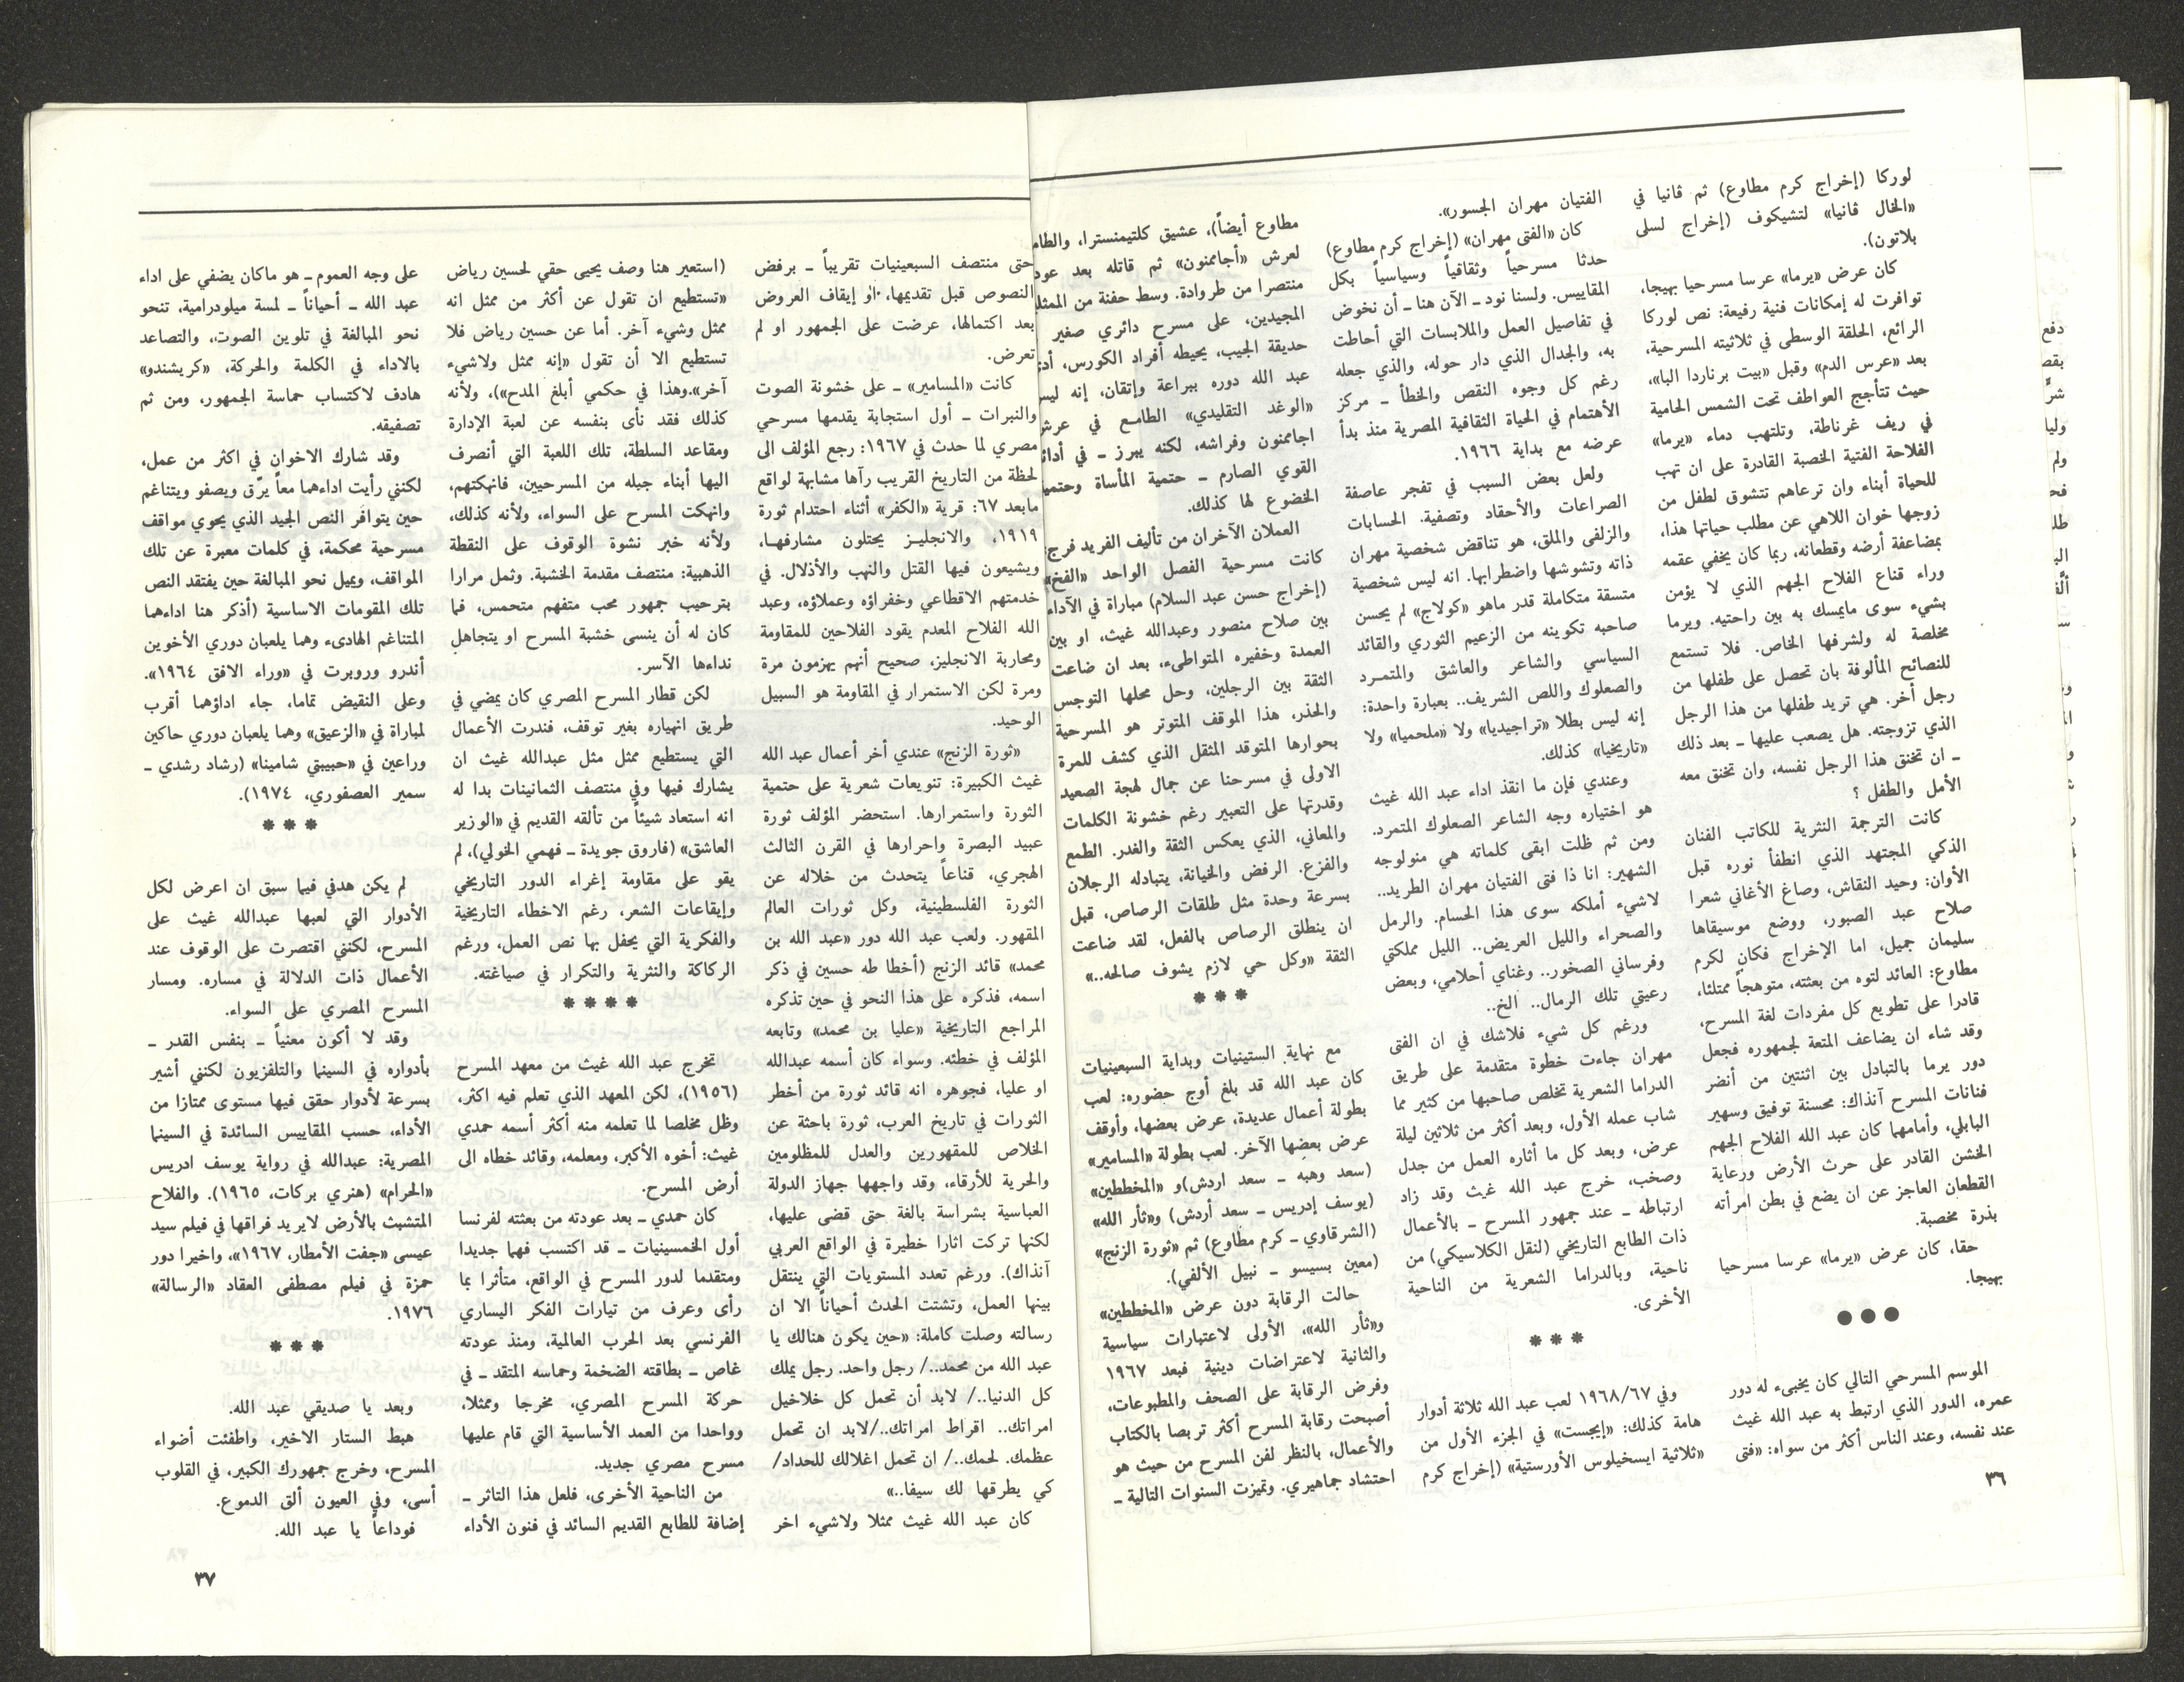 لوركا (إخراج كرم مطاوع) ثم ڤانيا في
«الخال ڤانيا» لتشيكوف (إخراج لسلى
بلاتون).
كان عرض «يرما» عرسا مسرحيا بهيجا،
توافرت له إمكانات فنية رفيعة: نص لوركا
الرائع، الحلقة الوسطى في ثلاثيته المسرحية،
بعد «عرس الدم» وقبل «بيت برناردا البا»،
حيث تتأجج العواطف تحت الشمس الحامية
في ريف غرناطة، وتلتهب دماء «يرما»
الفلاحة الفتية الخصبة القادرة على ان تهب
للحياة أبناء وان ترعاهم تتشوق لطفل من
زوجها خوان اللاهي عن مطلب حياتها هذا،
بمضاعفة أرضه وقطعانه، ربما كان يخفي عقمه
وراء قناع الفلاح الجهم الذي لا يؤمن
بشيء سوى مايمسك به بين راحتيه. ويرما
مخلصة له ولشرفها الخاص. فلا تستمع
للنصائح المألوفة بان تحصل على طفلها من
رجل أخر. هي تريد طفلها من هذا الرجل
الذي تزوجته. هل يصعب عليها ـ بعد ذلك
ـ ان تخنق هذا الرجل نفسه، وان تخنق معه
الأمل والطفل ؟
كانت الترجمة النثرية للكاتب الفنان
الذكي المجتهد الذي انطفأ نوره قبل
الأوان: وحيد النقاش، وصاغ الأغاني شعرا
صلاح عبد الصبور، ووضع موسيقاها
سليمان جميل، اما الإخراج فكان لكرم
مطاوع: العائد لتوه من بعثته، متوهجاً ممتلئا،
قادرا على تطويع كل مفردات لغة المسرح،
وقد شاء ان يضاعف المتعة لجمهوره فجعل
دور يرما بالتبادل بين اثنتين من أنضر
فنانات المسرح آنذاك: محسنة توفيق وسهير
البابلي، وأمامهما كان عبد الله الفلاح الجهم
الخشن القادر على حرث الأرض ورعاية
القطعان العاجز عن ان يضع في بطن امرأته
بذرة مخصبة.
حقا، كان عرض «يرما» عرسا مسرحيا
بهيجا.
●●●
الموسم المسرحي التالي كان يخبىء له دور
عمره، الدور الذي ارتبط به عبد الله غيث
عند نفسه، وعند الناس أكثر من سواه: «فتى
٣٦
الفتيان مهران الجسور».
كان «الفتى مهران» (إخراج كرم مطاوع)
حدثا مسرحياً وثقافياً وسياسياً بكل
المقاييس. ولسنا نود ـ الآن هنا ـ أن نخوض
في تفاصيل العمل والملابسات التي أحاطت
به، والجدال الذي دار حوله، والذي جعله
رغم كل وجوه النقص والخطأ ـ مركز
الأهتمام في الحياة الثقافية المصرية منذ بدأ
عرضه مع بداية ١٩٦٦.
ولعل بعض السبب في تفجر عاصفة
الصراعات والأحقاد وتصفية. الحسابات
والزلفى والملق، هو تناقض شخصية مهران
ذاته وتشوشها واضطرابها. انه ليس شخصية
متسقة متكاملة قدر ماهو «كولاج» لم يحسن
صاحبه تكوينه من الزعيم الثوري والقائد
السياسي والشاعر والعاشق والمتمرد
والصعلوك واللص الشريف.. بعبارة واحدة:
إنه ليس بطلا «تراجيديا» ولا «ملحميا» ولا
«تاريخيا» كذلك.
وعندي فإن ما انقذ اداء عبد الله غيث
هو اختياره وجه الشاعر الصعلوك المتمرد.
ومن ثم ظلت ابقى كلماته هي منولوجه
الشهير: انا ذا فتى الفتيان مهران الطريد..
لاشيء أملكه سوى هذا الحسام. والرمل
والصحراء والليل العريض.. الليل مملكتي
وفرساني الصخور.. وغناي أحلامي، وبعض
رعيتي تلك الرمال.. الخ..
ورغم كل شيء فلاشك في ان الفتى
مهران جاءت خطوة متقدمة على طريق
الدراما الشعرية تخلص صاحبها من كثير مما
شاب عمله الأول، وبعد أكثر من ثلاثين ليلة
عرض، وبعد كل ما أثاره العمل من جدل
وصخب، خرج عبد الله غيث وقد زاد
ارتباطه ـ عند جمهور المسرح ـ بالأعمال
ذات الطابع التاريخي (لنقل الكلاسيكي) من
ناحية، وبالدراما الشعرية من الناحية
الأخرى.
***
وفي ١٩٦٨/٦٧ لعب عبد الله ثلاثة أدوار
هامة كذلك: «إيجست» في الجزء الأول من
«ثلاثية ايسخيلوس الأورستية» (إخراج كرم
مطاوع أيضاً)، عشيق كلتيمنسترا، والطام
لعرش «أجاممنون» ثم قاتله بعد عود
منتصرا من طروادة. وسط حفنة من الممثل
المجيدين، على مسرح دائري صغير
حديقة الجيب، يحيطه أفراد الكورس، أدى
عبد الله دوره ببراعة وإتقان، إنه ليس
«الوغد التقليدي» الطامع في عرش
اجاممنون وفراشه، لكنه يبرز ـ في أدائ
القوي الصارم ـ حتمية المأساة وحتمي
الخضوع لها كذلك.
العملان الآخران من تأليف الفريد فرج:
كانت مسرحية الفصل الواحد «الفخ»
(إخراج حسن عبد السلام) مباراة في الآداء
بين صلاح منصور وعبدالله غيث، او بين
العمدة وخفيره المتواطىء، بعد ان ضاعت
الثقة بين الرجلين، وحل محلها التوجس
والحذر، هذا الموقف المتوتر هو المسرحية
بحوارها المتوقد المثقل الذي كشف للمرة
الاولى في مسرحنا عن جمال لهجة الصعيد
وقدرتها على التعبير رغم خشونة الكلمات
والمعاني، الذي يعكس الثقة والغدر. الطمع
والفزع. الرفض والخيانة، يتبادله الرجلان
بسرعة وحدة مثل طلقات الرصاص، قبل
ان ينطلق الرصاص بالفعل، لقد ضاعت
الثقة «وكل حي لازم يشوف صالحه..»
***
مع نهاية الستينيات وبداية السبعينيات
كان عبد الله قد بلغ أوج حضوره: لعب
بطولة أعمال عديدة، عرض بعضها، وأوقف
عرض بعضها الآخر. لعب بطولة «المسامير»
(سعد وهبه ـ سعد اردش)و «المخططين»
(يوسف إدريس ـ سعد أردش) و«ثأر الله»
(الشرقاوي ـ كرم مطاوع) ثم «ثورة الزنج»
(معين بسيسو ـ نبيل الألفي).
حالت الرقابة دون عرض «المخططين»
و«ثأر الله»، الأولى لاعتبارات سياسية
والثانية لاعتراضات دينية فبعد ١٩٦٧
وفرض الرقابة على الصحف والمطبوعات،
أصبحت رقابة المسرح أكثر تربصا بالكتاب
والأعمال، بالنظر لفن المسرح من حيث هو
احتشاد جماهيري. وتميزت السنوات التالية ـ
حتى منتصف السبعينيات تقريباً ـ برفض
النصوص قبل تقديمها، او إيقاف العروض
بعد اكتمالها، عرضت على الجمهور او لم
تعرض.
كانت «المسامير» ـ على خشونة الصوت
والنبرات ـ أول استجابة يقدمها مسرحي
مصري لما حدث في ١٩٦٧: رجع المؤلف الى
لحظة من التاريخ القريب رآها مشابهة لواقع
مابعد ٦٧: قرية «الكفر» أثناء احتدام ثورة
١٩١٩، والانجليز يحتلون مشارفها،
ويشيعون فيها القتل والنهب والأذلال. في
خدمتهم الاقطاعي وخفراؤه وعملاؤه، وعبد
الله الفلاح المعدم يقود الفلاحين للمقاومة
ومحاربة الانجليز، صحيح أنهم يهزمون مرة
ومرة لكن الاستمرار في المقاومة هو السبيل
الوحيد.
«ثورة الزنج» عندي أخر أعمال عبد الله
غيث الكبيرة: تنويعات شعرية على حتمية
الثورة واستمرارها. استحضر المؤلف ثورة
عبيد البصرة واحرارها في القرن الثالث
الهجري، قناعاً يتحدث من خلاله عن
الثورة الفلسطينية، وكل ثورات العالم
المقهور. ولعب عبد الله دور «عبد الله بن
محمد» قائد الزنج (أخطا طه حسين في ذكر
اسمه، فذكره على هذا النحو في حين تذكره
المراجع التاريخية «عليا بن محمد» وتابعه
المؤلف في خطئه. وسواء كان أسمه عبدالله
او عليا، فجوهره انه قائد ثورة من أخطر
الثورات في تاريخ العرب، ثورة باحثة عن
الخلاص للمقهورين والعدل للمظلومين
والحرية للأرقاء، وقد واجهها جهاز الدولة
العباسية بشراسة بالغة حتى قضى عليها،
لكنها تركت اثارا خطيرة في الواقع العربي
آنذاك). ورغم تعدد المستويات التي ينتقل
بينها العمل، وتشتت الحدث أحياناً الا ان
رسالته وصلت كاملة: «حين يكون هنالك يا
عبد الله من محمد../ رجل واحد. رجل يملك
كل الدنيا../ لابد أن تحمل كل خلاخيل
امراتك.. اقراط امراتك../لابد ان تحمل
عظمك. لحمك../ ان تحمل اغلالك للحداد/
كي يطرقها لك سيفا..»
كان عبد الله غيث ممثلا ولاشيء اخر
(استعير هنا وصف يحيى حقي لحسين رياض
«تستطيع ان تقول عن أكثر من ممثل انه
ممثل وشيء آخر. أما عن حسين رياض فلا
تستطيع الا أن تقول «إنه ممثل ولاشيء
آخر».وهذا في حكمي أبلغ المدح»)، ولأنه
كذلك فقد نأى بنفسه عن لعبة الإدارة
ومقاعد السلطة، تلك اللعبة التي أنصرف
اليها أبناء جيله من المسرحيين، فانهكتهم،
وانهكت المسرح على السواء، ولأنه كذلك،
ولأنه خبر نشوة الوقوف على النقطة
الذهبية: منتصف مقدمة الخشبة. وثمل مرارا
بترحيب جمهور محب متفهم متحمس، فما
كان له أن ينسى خشبة المسرح او يتجاهل
نداءها الآسر.
لكن قطار المسرح المصري كان يمضي في
طريق انهياره بغير توقف، فندرت الأعمال
التي يستطيع ممثل مثل عبدالله غيث ان
يشارك فيها وفي منتصف الثمانينات بدا له
انه استعاد شيئاً من تألقه القديم في «الوزير
العاشق» (فاروق جويدة ـ فهمي الخولي)، لم
يقو على مقاومة إغراء الدور التاريخي
وإيقاعات الشعر، رغم الاخطاء التاريخية
والفكرية التي يحفل بها نص العمل، ورغم
الركاكة والنثرية والتكرار في صياغته.
****
تخرج عبد الله غيث من معهد المسرح
(١٩٥٦)، لكن المعهد الذي تعلم فيه اكثر،
وظل مخلصا لما تعلمه منه أكثر أسمه حمدي
غيث: أخوه الأكبر، ومعلمه، وقائد خطاه الى
أرض المسرح.
كان حمدي ـ بعد عودته من بعثته لفرنسا
أول الخمسينيات ـ قد اكتسب فهما جديدا
ومتقدما لدور المسرح في الواقع، متأثرا بما
رأى وعرف من تيارات الفكر اليساري
الفرنسي بعد الحرب العالمية، ومنذ عودته
غاص ـ بطاقته الضخمة وحماسه المتقد ـ في
حركة المسرح المصري، مخرجا وممثلا،
وواحدا من العمد الأساسية التي قام عليها
مسرح مصري جديد.
من الناحية الأخرى، فلعل هذا التاثر ـ
إضافة للطابع القديم السائد في فنون الأداء
على وجه العموم ـ هو ماكان يضفي على اداء
عبد الله ـ أحياناً ـ لمسة ميلودرامية، تنحو
نحو المبالغة في تلوين الصوت، والتصاعد
بالاداء في الكلمة والحركة، «كريشندو»
هادف لاكتساب حماسة الجمهور، ومن ثم
تصفيقه.
وقد شارك الاخوان في اكثر من عمل،
لكنني رأيت اداءهما معاً يرّق ويصفو ويتناغم
حين يتوافر النص الجيد الذي يحوي مواقف
مسرحية محكمة، في كلمات معبرة عن تلك
المواقف، ويميل نحو المبالغة حين يفتقد النص
تلك المقومات الاساسية (أذكر هنا اداءهما
المتناغم الهادىء وهما يلعبان دوري الأخوين
أندرو وروبرت في «وراء الافق ١٩٦٤».
وعلى النقيض تماما، جاء اداؤهما أقرب
لمباراة في «الزعيق» وهما يلعبان دوري حاكين
وراعين في «حبيبتي شامينا» (رشاد رشدي ـ
سمير العصفوري، ١٩٧٤).
***
لم يكن هدفي فيما سبق ان اعرض لكل
الأدوار التي لعبها عبدالله غيث على
المسرح، لكنني اقتصرت على الوقوف عند
الأعمال ذات الدلالة في مساره. ومسار
المسرح المصري على السواء.
وقد لا أكون معنياً ـ بنفس القدر ـ
بأدواره في السينما والتلفزيون لكنني أشير
بسرعة لأدوار حقق فيها مستوى ممتازا من
الأداء، حسب المقاييس السائدة في السينما
المصرية: عبدالله في رواية يوسف ادريس
«الحرام» (هنري بركات، ١٩٦٥). والفلاح
المتشبث بالأرض لايريد فراقها في فيلم سيد
عيسى «جفت الأمطار، ١٩٦٧»، واخيرا دور
حمزة في فيلم مصطفى العقاد «الرسالة»
١٩٧٦.
***
وبعد يا صديقي عبد الله.
هبط الستار الاخير، واطفئت أضواء
المسرح، وخرج جمهورك الكبير، في القلوب
أسى، وفي العيون ألق الدموع.
فوداعاً يا عبد الله.
٣٧